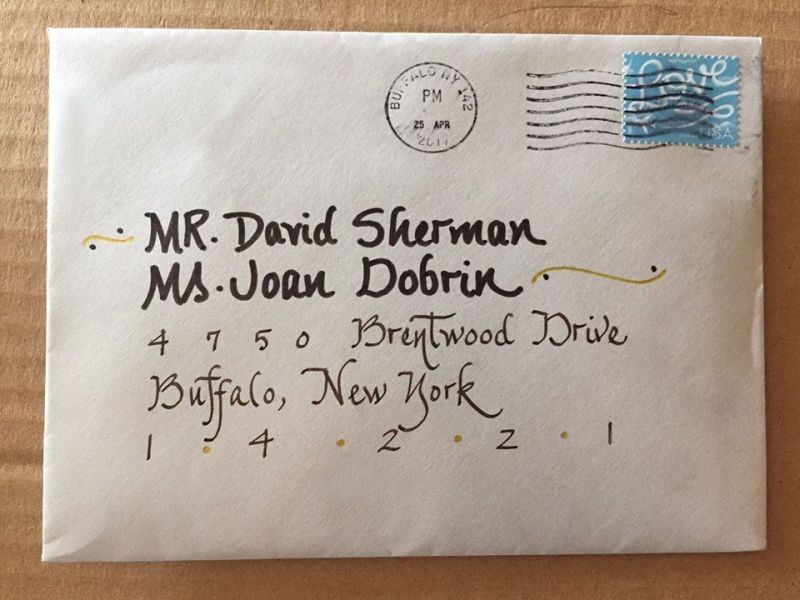 BUFFALO NY 142
PM
25 APR
2017
Love
USA
MR. David Sherman
Ms. Joan Dobrin
4 7 5 0 Brentwood Drive
Buffalo, New York
1 • 4 • 2 • 2 • 1